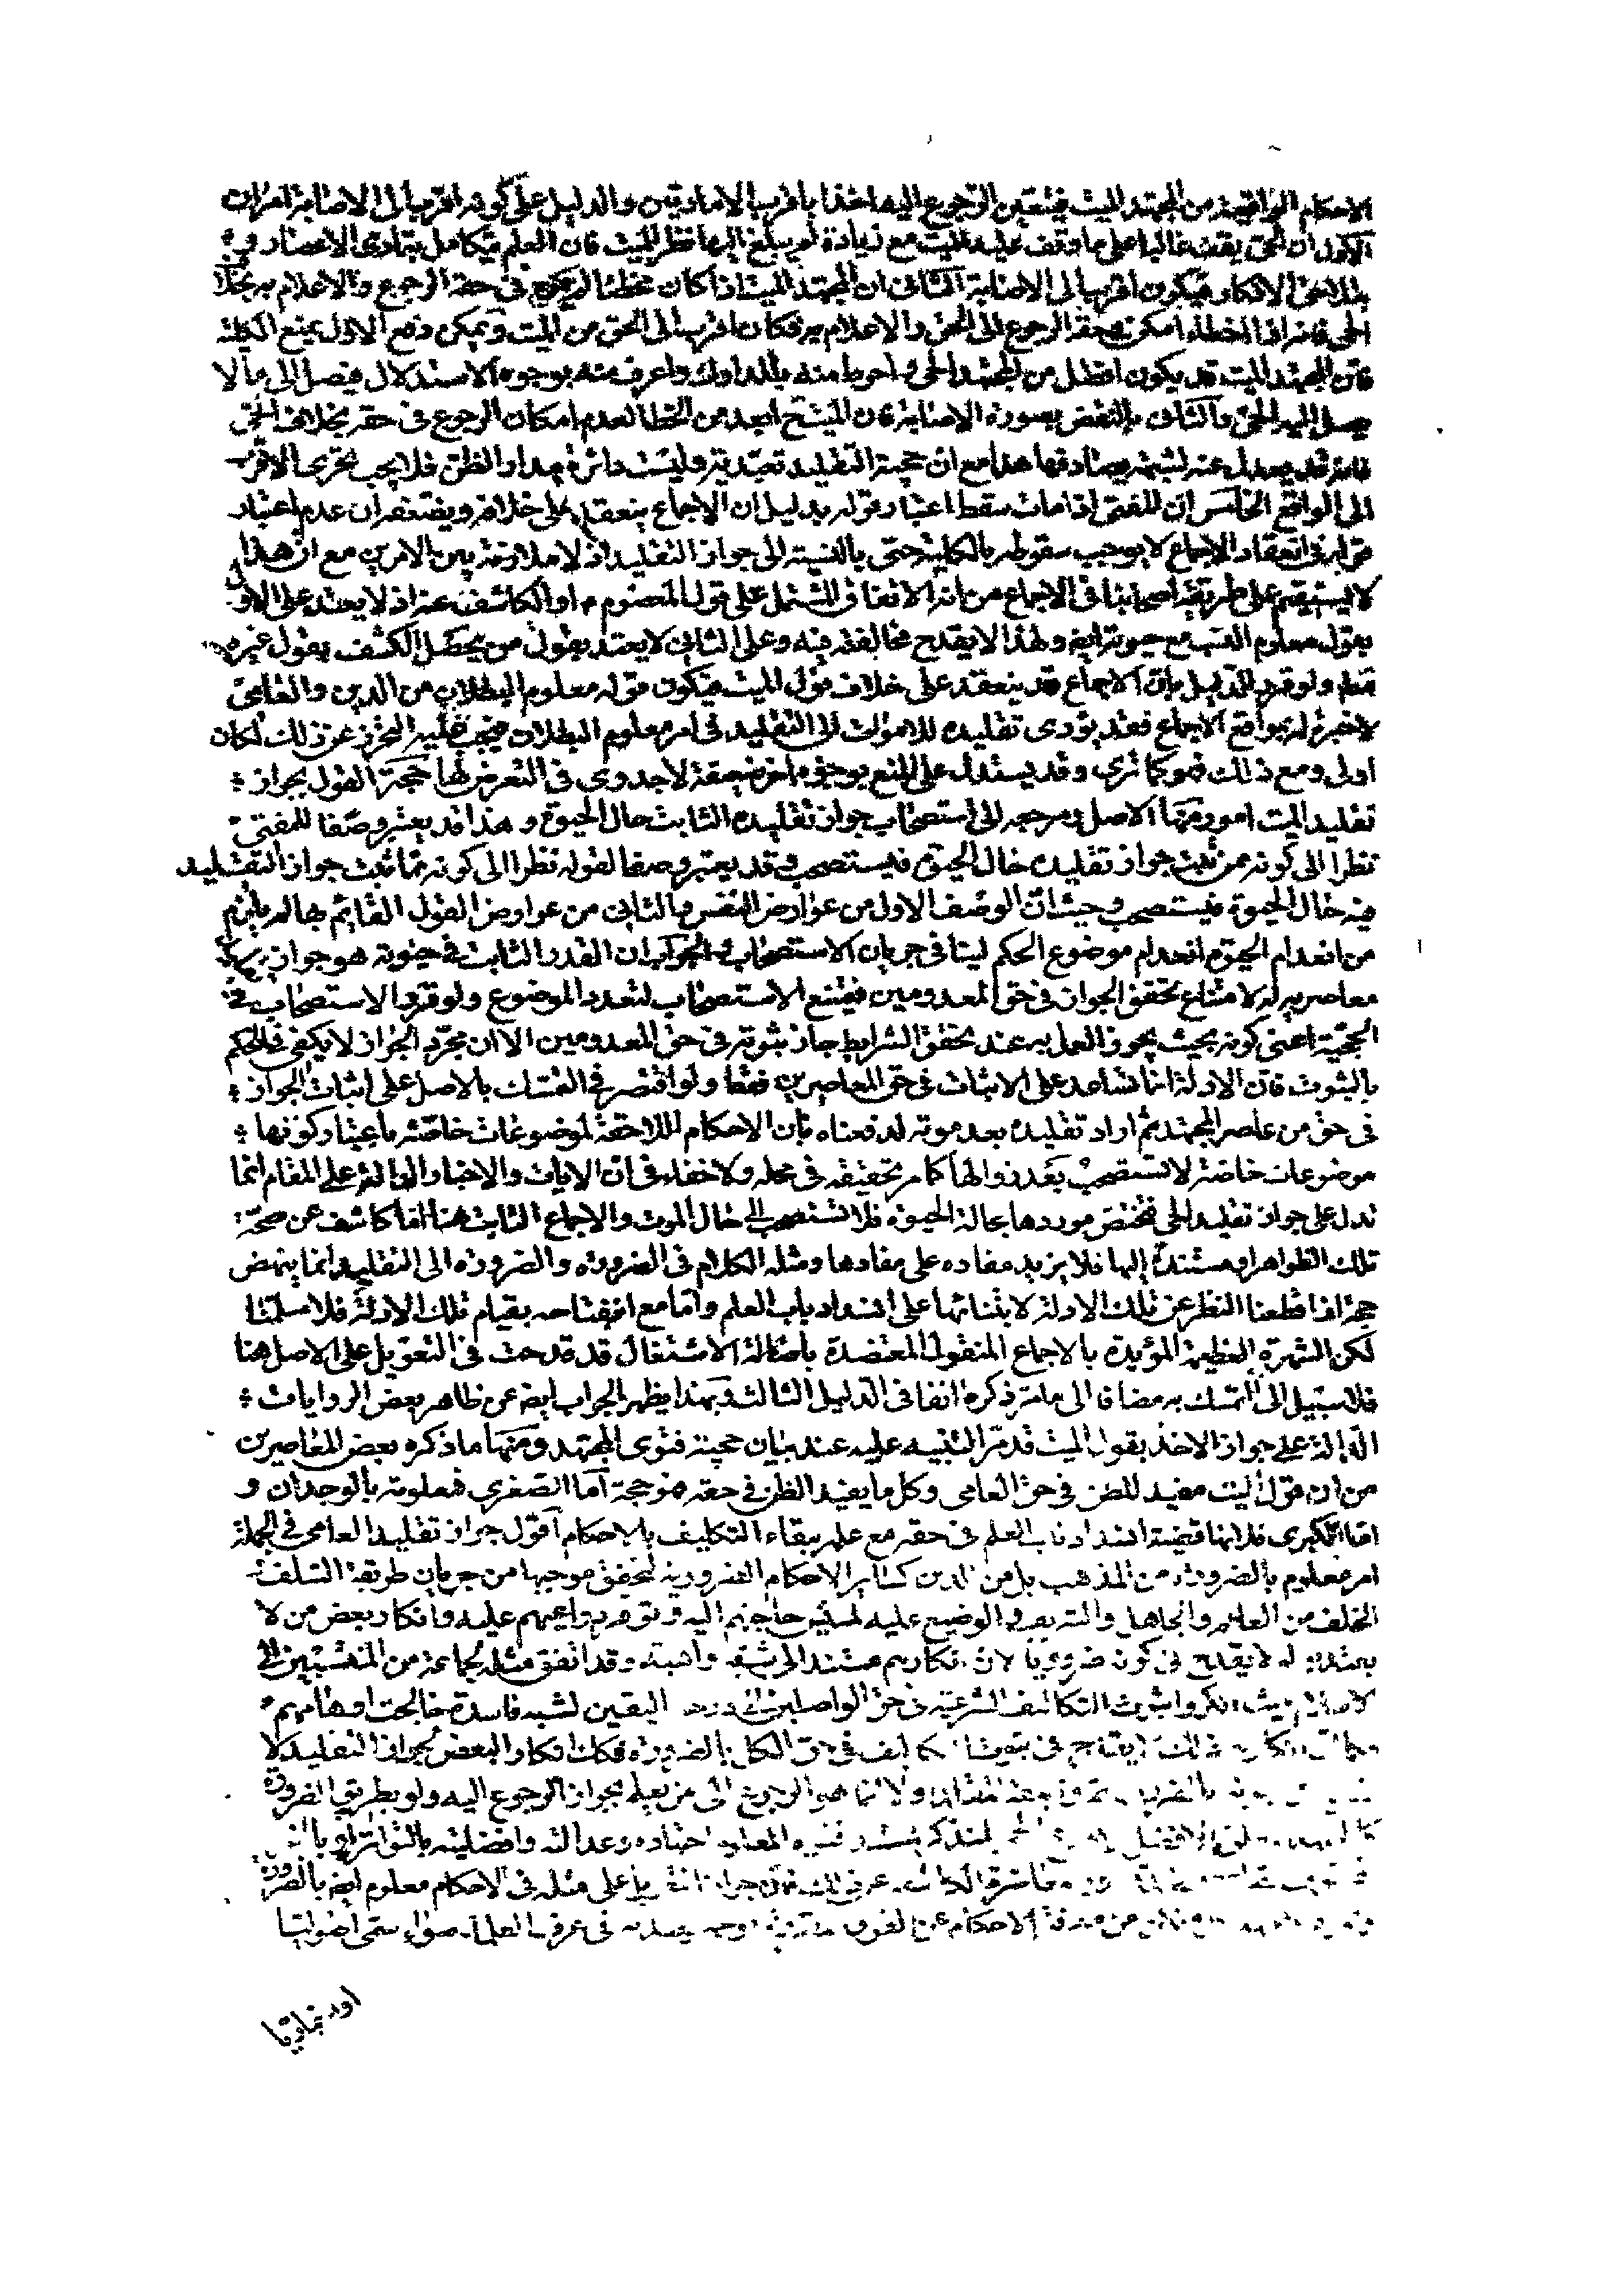 الاحكام الواقعية من المجتهد الميت فيتعين الرجوع اليه اخذا باقرب الامارتين والدليل على كونه اقرب الى الاصابة امران
الاول ان الحى يقف غالبا على ما وقف عليه الميت مع زيادة لم يبلغ اليها نظر الميت فان العلم يتكامل بتمادى الاعصار و
بتلاحق الافكار فيكون اقرب الى الاصابة الثانى ان المجتهد الميت اذا كان مخطئا لم يمكن فى حقه الرجوع والاعلام به بخلاف
الحى فانه اذا اخطاء امكن فى حقه الرجوع الى الحق والاعلام به فكان اقرب الى الحق من الميت ويمكن دفع الاول بمنع الكلية
فان المجتهد الميت قد يكون افضل من المجتهد الحى واحوط منه بالمدارك واعرف منه بوجوه الاستدلال فيصل الى ما لا
يصل اليه الحى والثانى بالنقض بصورة الاصابة فان الميت ح ابعد من الخطا لعدم امكان الرجوع فى حقه بخلاف الحى
فانه قد يعدل عنه لشبهة يصادفها هذا مع ان حجية التقليد تعبدية وليست دائرة مدار الظن فلا يجب تحرى الاقرب
الى الواقع الخامس ان المفتى اذا مات سقط اعتبار قوله بدليل ان الاجماع ينعقد على خلافه ويضعف ان عدم اعتبار
قوله فى انعقاد الاجماع لا يوجب سقوطه بالكلية حتى بالنسبة الى جواز التقليد اذ لا ملازمة بين الامرين مع ان هذا
لا يستقيم على طريقة اصحابنا فى الاجماع من انه الاتفاق المشتمل على قول المعصوم ع او الكاشف عنه اذ لا يعتد على الاول
بقول معلوم النسب مع حيوته ايضا ولهذا لا يقدح مخالفته فيه وعلى الثانى لا يعتد بقول من يحصل الكشف بقول غيره
قط ولو قرر الدليل بان الاجماع قد ينعقد على خلاف قول الميت فيكون قوله معلوم البطلان من الدين والعامى
لا خبرة له بمواقع الاجماع فقد يؤدى تقليده للاموات الى التقليد فى امر معلوم البطلان فيجب عليه التحرز عن ذلك لكان
اولى ومع ذلك فهو كما ترى وقد يستدل على المنع بوجوه اخر ضعيفة لا جدوى فى التعرض لها حجة القول بجواز
تقليد الميت امور منها الاصل ومرجعه الى استصحاب جواز تقليده الثابت حال الحيوة وهذا قد يعتبر وصفا للمفتى
نظرا الى كونه ممن ثبت جواز تقليده حال الحيوة فيستصحب وقد يعتبر وصفا لقوله نظرا الى كونه مما ثبت جواز التقليد
فيه حال الحيوة فيستصحب وحيث ان الوصف الاول من عوارض النفس والثانى من عوارض القول القائم بها لم يلزم
من انعدام الحيوة انعدام موضوع الحكم لينافى جريان الاستصحاب والجواب ان القدر الثابت فى حيوته هو جواز
معاصريه له لامتناع تحقق الجواز فى حق المعدومين فيمتنع الاستصحاب لتعدد الموضوع ولو قرر الاستصحاب فى
الحجية اعنى كونه بحيث يجوز العمل به عند تحقق الشرايط جاز ثبوته فى حق المعدومين الا ان مجرد الجواز لا يكفى فى الحكم
بالثبوت فان الادلة انما تساعد على الاثبات فى حق المعاصرين فقط ولو اقتصر فى التمسك بالاصل على اثبات الجواز
فى حق من عاصر المجتهد ثم اراد تقليده بعد موته لدفعناه بان الاحكام اللاحقة لموضوعات خاصة باعتبار كونها
موضوعات خاصة لا تستصحب بعد زوالها كما مر تحقيقه فى محله ولا خفاء فى ان الايات والاخبار الدالة على المقام انما
تدل على جواز تقليد الحى فيختص موردها بحالة الحيوة فلا تستصحب الى حال الموت والاجماع الثابت هنا انما كاشف عن صحة
تلك الظواهر او مستندة اليها فلا يزيد مفاده على مفادها ومثله الكلام فى الضرورة والضرورة الى التقليد انما ينهض
حجة اذا قطعنا النظر عن تلك الادلة لابتنائها على انسداد باب العلم واما مع انفتاحه بقيام تلك الادلة فلا سلمنا
لكن الشهرة العظيمة المؤيدة بالاجماع المنقول المعتضدة باصالة الاشتغال قد قدحت فى التعويل على الاصل هنا
فلا سبيل الى التمسك به مضافا الى ما مر ذكره انفا فى الدليل الثالث وبهذا يظهر الجواب ايضا عن ظاهر بعض الروايات
الدالة على جواز الاخذ بقول الميت قد مر التنبيه عليه عند بيان حجية فتوى المجتهد ومنها ما ذكره بعض المعاصرين
من ان قول الميت مفيد للظن فى حق العامى وكل ما يفيد الظن فى حقه فهو حجة اما الصغرى فمعلومة بالوجدان و
اما الكبرى فلانها قضية انسداد باب العلم فى حقه مع علمه ببقاء التكليف بالاحكام اقول جواز تقليد العامى فى الجملة
امر معلوم بالضرورة من المذهب بل من الدين كساير الاحكام الضرورية لتحقق موجبها من جريان طريقة السلف
الخلف من العالم والجاهل والشريف والوضيع عليه لمسيس حاجتهم اليه وتوفر دواعيهم عليه وانكار بعض من لا
يعتد به له لا يقدح فى كونه ضروريا لان انكارهم مستند الى شبهة واهية وقد اتفق مثله لجماعة من المنتسبين الى
الاسلام حيث انكروا ثبوت التكاليف الشرعية فى حق الواصلين الى درجة اليقين لشبه فاسدة خالجت اوهامهم
فكما ان انكارهم ذلك لا يقدح فى ثبوت التكاليف فى حق الكل بالضرورة فكك انكار البعض لجواز التقليد لا
ولا انما هو الرجوع الى من يعلم بجواز الرجوع اليه ولو بطريق الضرورة
اجتهاده وعدالته وافضليته بالتواتر او
على مثله فى الاحكام معلوم ايضا بالضرورة
من معرفة الاحكام عن فى عرف العلماء سواء سمى اصوليا
او اخباريا